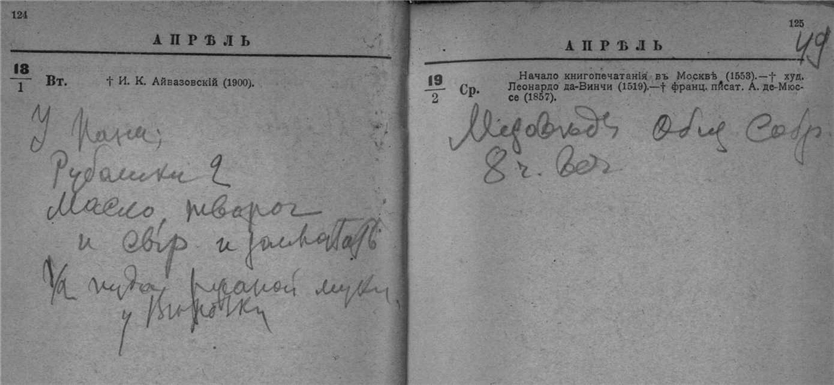 124
АПРѢЛЬ
18/1 Вт. † И. К. Айвазовскій (1900).
У
Рубашки 2
Масло, творог
и сыр и
1/2 пуда ржаной муки
у
125
49
АПРѢЛЬ
19/2 Ср. Начало книгопечатанія въ Москвѣ (1553).—† худ.
Леонардо да-Винчи (1519).—† франц. писат. А. де-Мюс-
се (1857).
Общ Собр
8 ч. веч